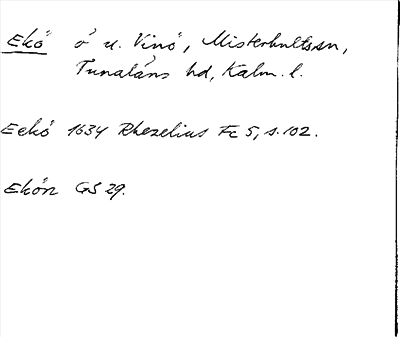 Ekö ö u. Vinö, Misterhults sn,
Tunaläns hd, Kalm. l.
Eekö 1634 Rhezelius Fc 5, s. 102.
Ekön GS 29.